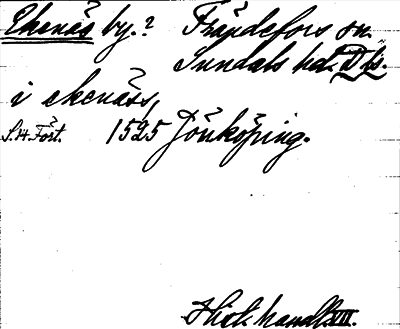 Ekenäs by.? Frändefors sn.
Sundals hd. Dls.
i ekenäss,
S.H. Fört. 1525 Jönköping.
Hist. handl. VIII.